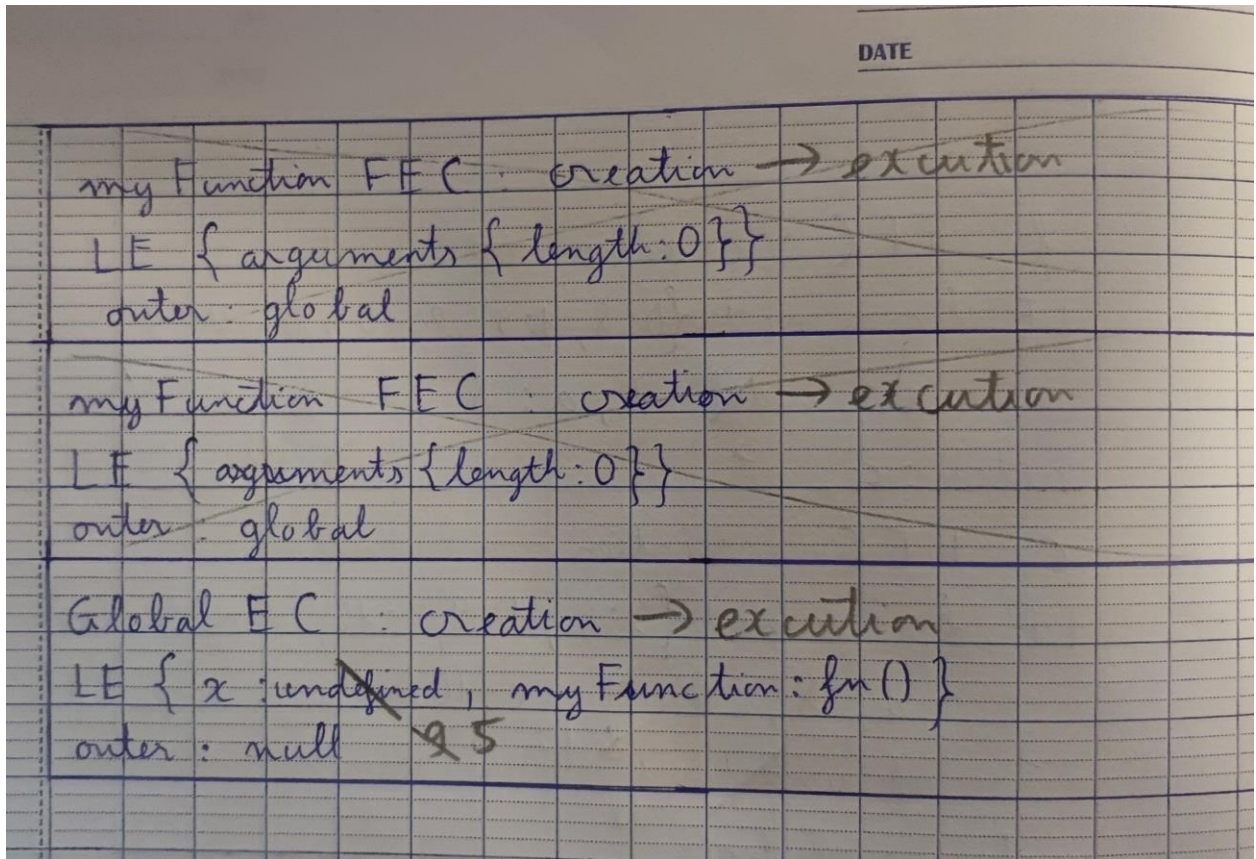 DATE
my Function FEC : creation → excution
LE { arguments { length : 0 } }
outer : global
my Function FEC : creation → excution
LE { arguments { length : 0 } }
outer : global
Global EC : creation → excution
LE { x : undefined , my Function : fn () }
outer : null 2 5